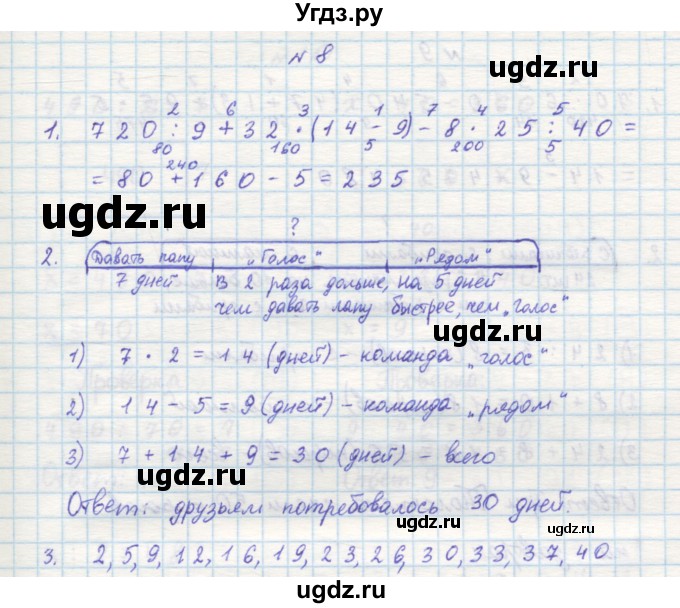 Угдз.ру
№ 8
ugdz.ru
2 6 3 1 7 4 5
1. 720 : 9 + 32 · (14 - 9) - 8 · 25 : 40 =
80 160 5 200 5
240
= 80 + 160 - 5 = 235
ugdz.ru
?
2. Давать лапу „Голос“ „Рядом“
7 дней В 2 раза дольше, на 5 дней
чем давать лапу быстрее, чем „голос“
ugdz.ru
1) 7 · 2 = 14 (дней) - команда „голос“
2) 14 - 5 = 9 (дней) - команда „рядом“
3) 7 + 14 + 9 = 30 (дней) - всего
ugdz.ru
Ответ: друзьям потребовалось 30 дней.
ugdz.ru
3. 2, 5, 9, 12, 16, 19, 23, 26, 30, 33, 37, 40
ugdz.ru